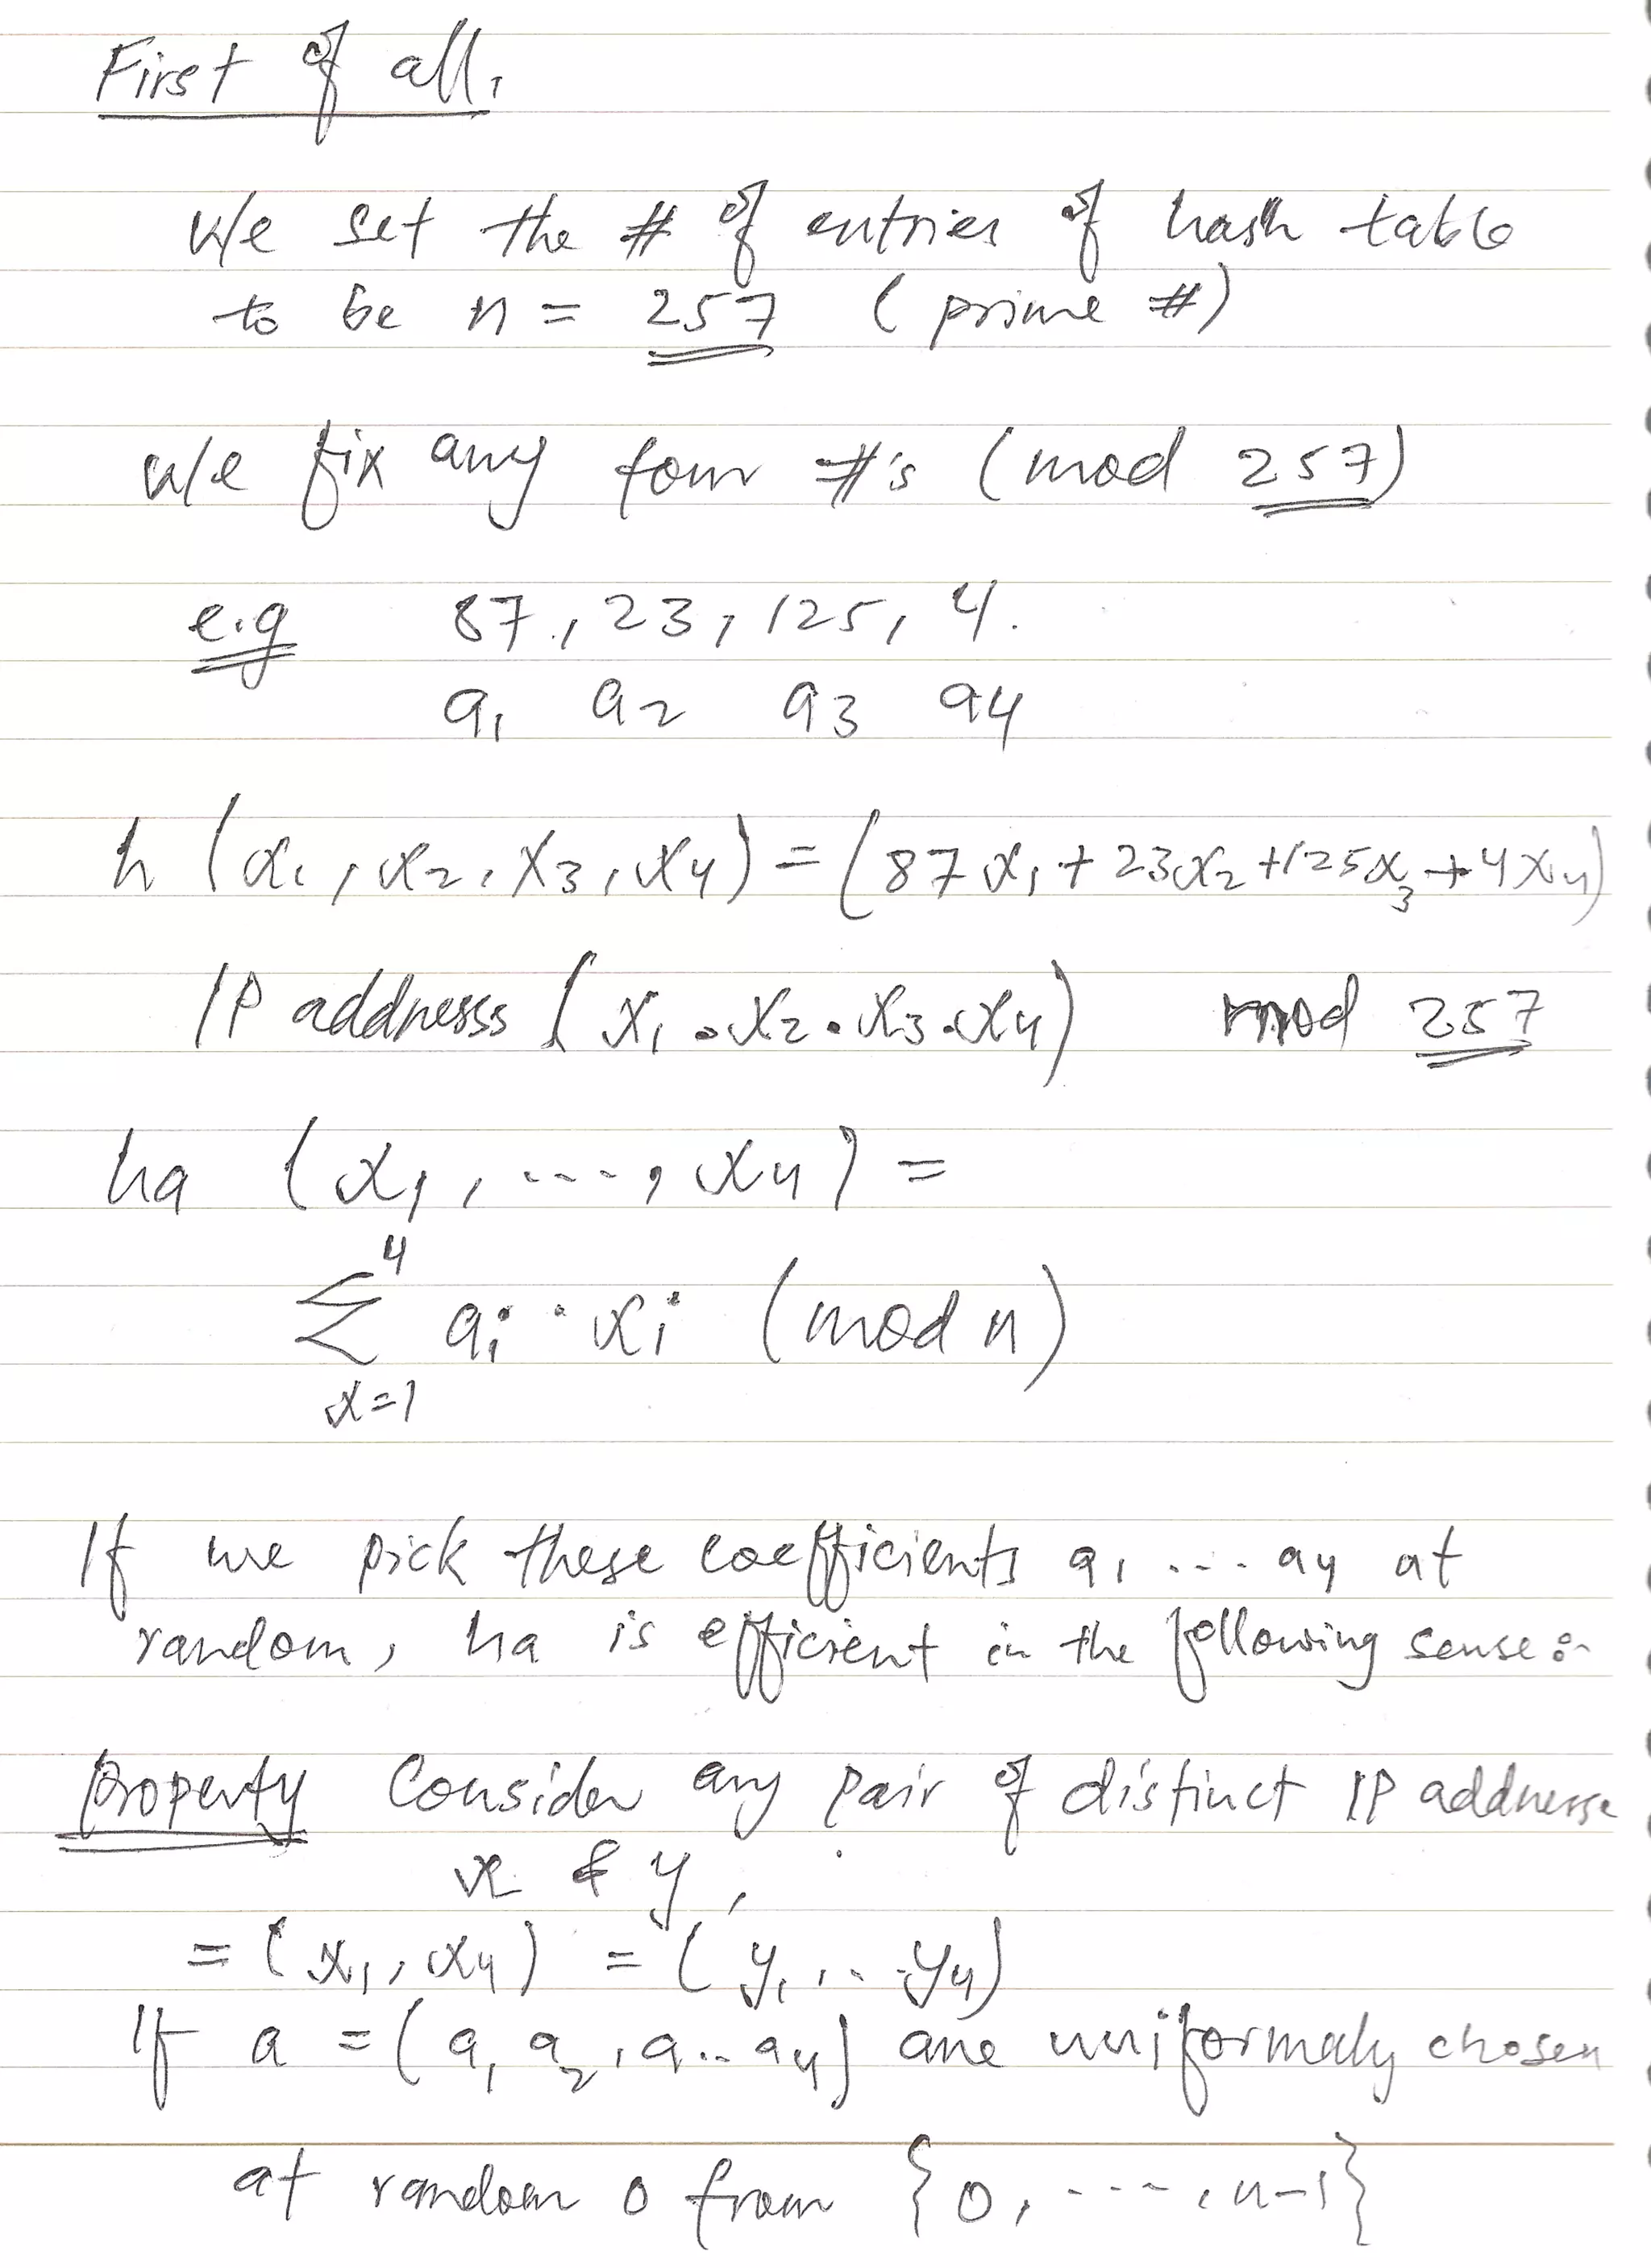 First of all,
We set the # of entries of hash table
to be n = 257 (prime #)
We fix any four #'s (mod 257)
e.g 87, 23, 125, 4.
a1 a2 a3 a4
h (x1, x2, x3, x4) = (87x1 + 23x2 + 125x3 + 4x4)
IP addresss (x1 . x2 . x3 . x4) mod 257
ha (x1, ...., x4) =
4
Σ ai · xi (mod n)
x=1
If we pick these coefficients a1 .... a4 at
random, ha is efficient in the following sense:-
Property Consider any pair of distinct IP addresse
x & y,
= (x1, x4) = (y1, .. y4)
If a = (a1 a2, a .. a4) are uniformaly chosen
at random 0 from {0, ...., n-1}